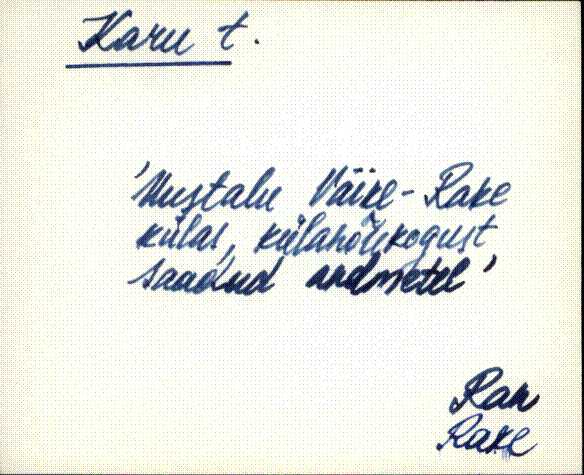 Karu t.
'Uustalu Väike-Rake
külas, külanõukogust
saadud andmetel'
Ran
Rake